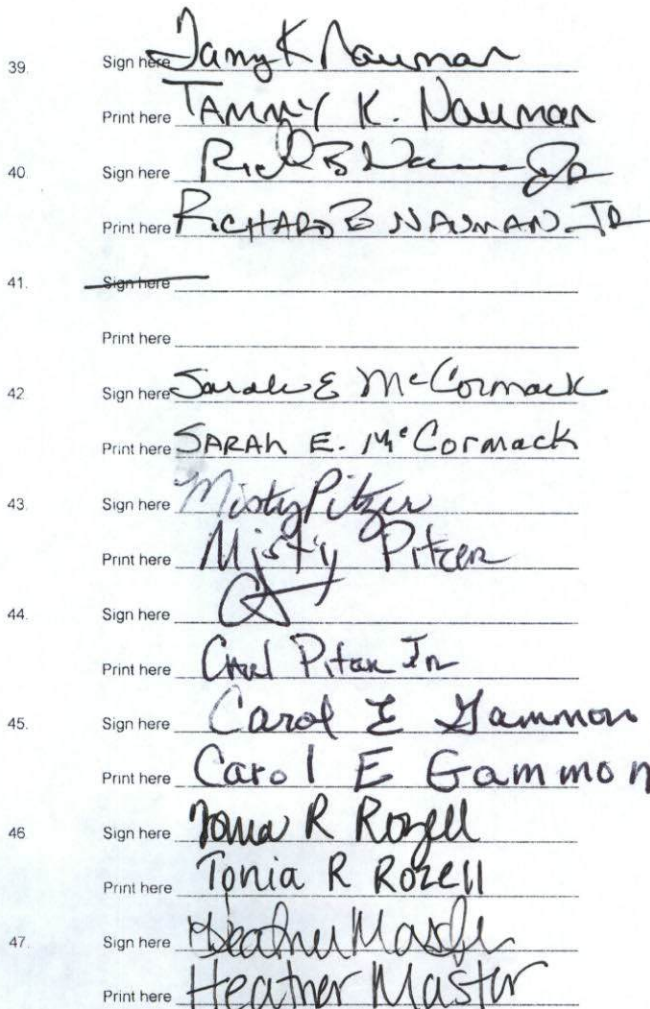 39. Sign here Tamy K Nauman
Print here TAMMY K. Nauman
40. Sign here
Print here RICHARD B NAUMAN JR
41. Sign here
Print here
42. Sign here Sarah E McCormack
Print here SARAH E. McCormack
43. Sign here Misty Pitzer
Print here Misty Pitzer
44. Sign here
Print here Pitzer Jr
45. Sign here Carol E Gammon
Print here Carol E Gammon
46 Sign here Tonia R Rozell
Print here Tonia R Rozell
47. Sign here Heather Master
Print here Heather Master